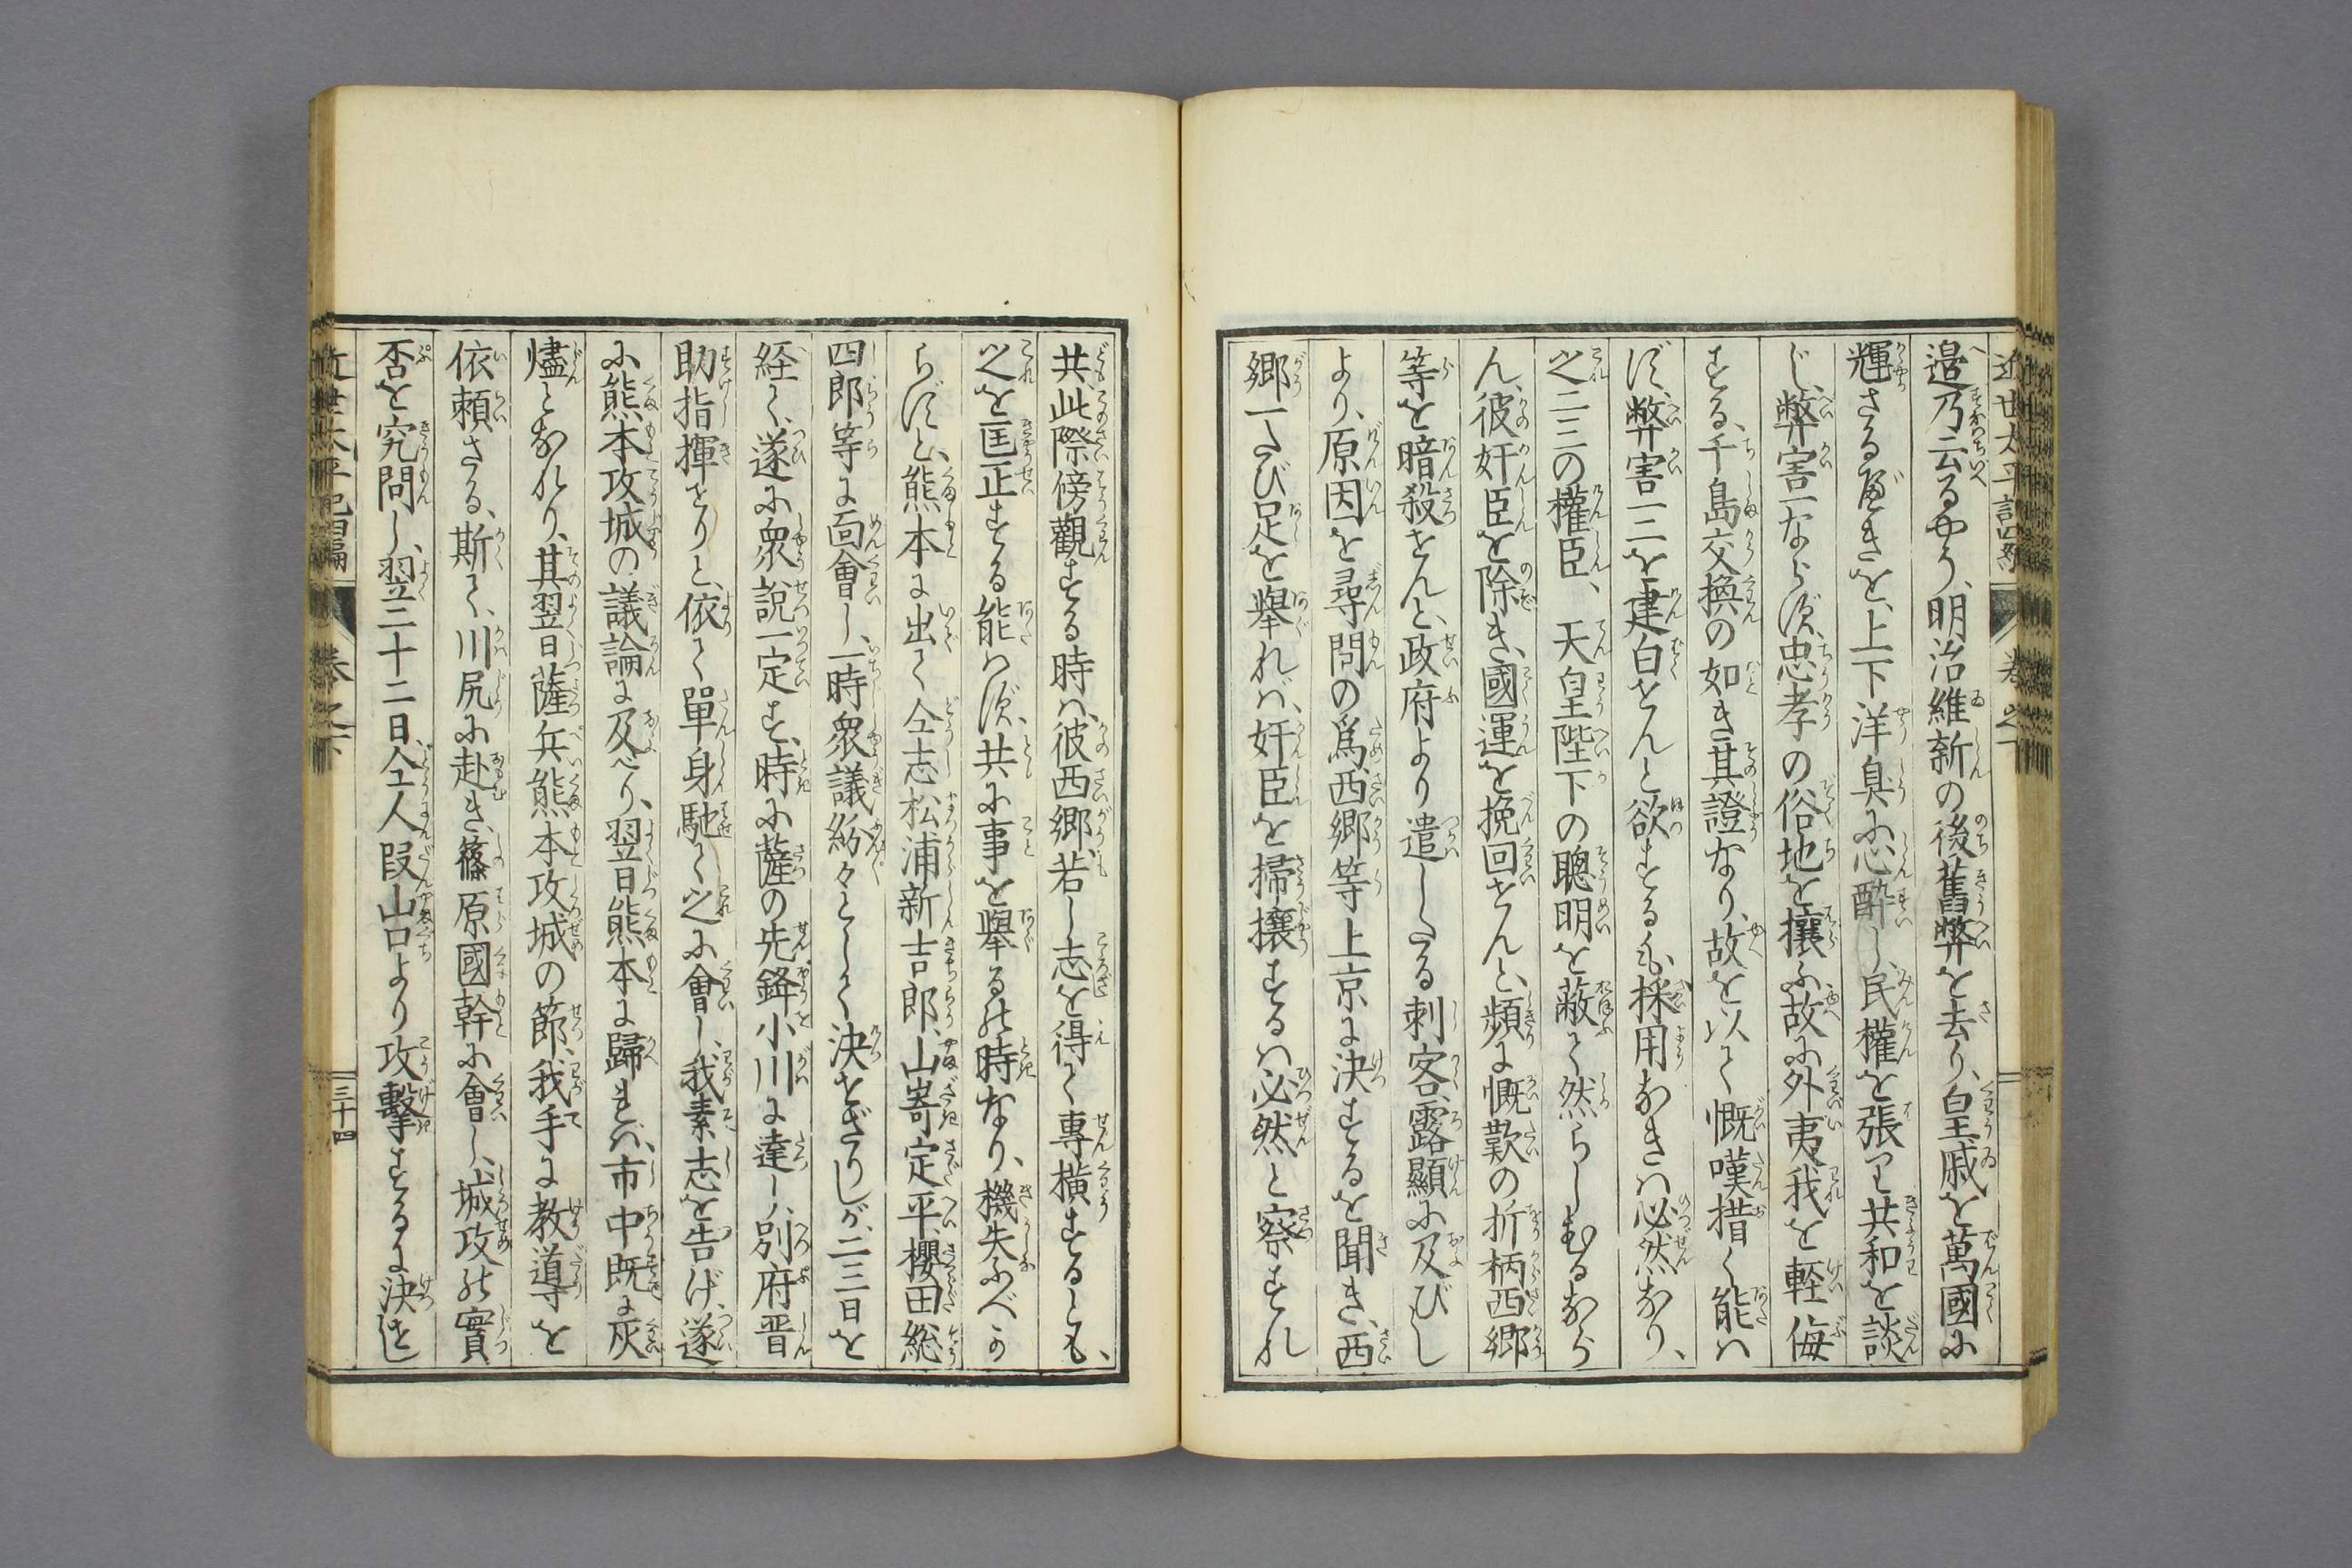 近世太平記四編 卷之下
邉乃云るやう、明治維新の後舊弊を去り、皇威を萬國に
輝さるべきを、上下洋臭に心酔し、民權を張り共和を談
じ、弊害一ならず、忠孝の俗地を攘ふ故に外夷我を軽侮
する、千島交換の如き其證なり、故を以て慨嘆措く能は
ず、弊害一二を建白せんと欲するも、採用なきは必然なり、
之二三の權臣、天皇陛下の聰明を蔽て然らしむるなら
ん、彼奸臣を除き、國運を挽回せんと、頻に慨歎の折柄西郷
等を暗殺せんと、政府より遣したる刺客、露顯に及びし
より、原因を尋問の爲、西郷等上京に決するを聞き、西
郷一たび足を擧れば、奸臣を掃攘するは必然と察すれ
共、此際傍觀する時は、彼西郷、若し志を得て專横するとも、
之を匡正する能はず、共に事を擧るの時なり、機失ふべか
らずと、熊本に出て仝志松浦新吉郎、山嵜定平、櫻田総
四郎等に面會し、一時衆議紛々として決せざりしが、二三日を
経て、遂に衆説一定す、時に薩の先鋒小川に達し、別府晋
助指揮せりと、依て單身馳て之に會し、我素志を告げ、遂
に熊本攻城の議論に及べり、翌日熊本に歸れば、市中既に灰
燼となれり、其翌日薩兵熊本攻城の節、我手に教導を
依頼さる、斯て、川尻に赴き、篠原國幹に會し、城攻の實
否を究問し、翌二十二日仝人段山口より攻撃するに決し
近世太平記四編 卷之下 三十四